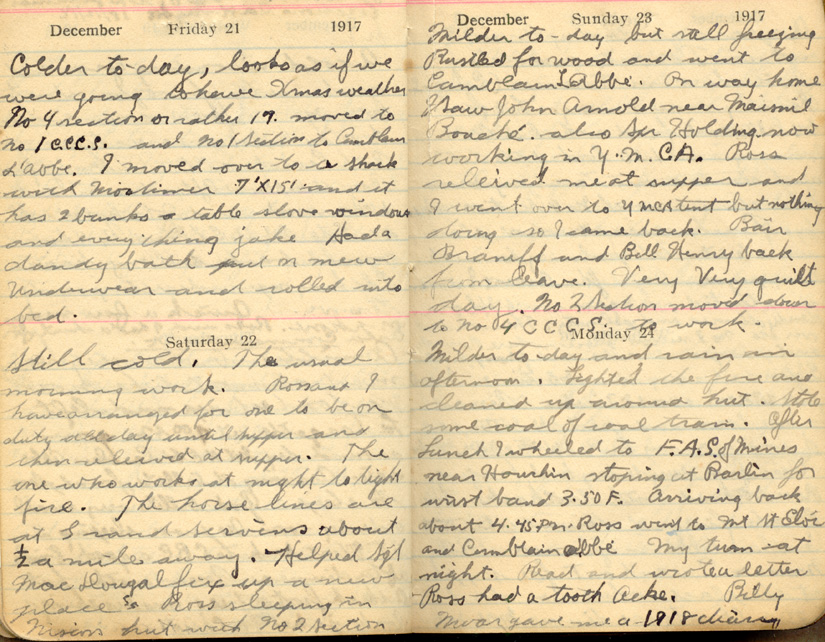 December Friday 21 1917
Colder to-day, looks as if we
were going to have Xmas weather
No 4 section or rather 19. moved to
No 1 C.C.C.S. and No 1 Section to Camblain
L'Abbe. I moved over to a shack
with Mortimer 7'X15' and it
has 2 bunks a table stove windows
and everything jake Had a
dandy bath put on new
Underwear and rolled into
bed.
Saturday 22
Still cold. The usual
morning work. Ross and I
have arranged for one to be on
duty all day until supper and
then relieved at supper. The
one who works at night to light
fire. The horse lines are
at Grand Servins about
½ a mile away. Helped Sgt
Mac Dougal fix up a new
place & Ross sleeping in
hut with No 2 Section
December Sunday 23 1917
Milder to-day but still freezing
Rustled for wood and went to
Camblain L'Abbé. On way home
I saw John Arnold near Maisnil
Bouché. also Spr Holding now
working in Y.M.CA. Ross
releived me at supper and
I went over to YMCA tent but nothing
doing so I came back.
Braniff and Bill Henry back
from leave. Very Very quiet
day. No 2 Section moved down
to No 4 C C C.S. to work.
Monday 24
Milder to-day and rain in
afternoon. Lighted the fire and
cleaned up around hut. Stole
some coal of coal train. After
Lunch I wheeled to F.A.S. of Mines
near Hourhin stoping at Barlin for
wrist band 3.50 F. Arriving back
about 4.45 P.m. Ross went to Mt St Eloi
and Camblain abbé My turn at
night. Read and wrote a letter
Ross had a tooth acke. Billy
gave me a 1918 diary